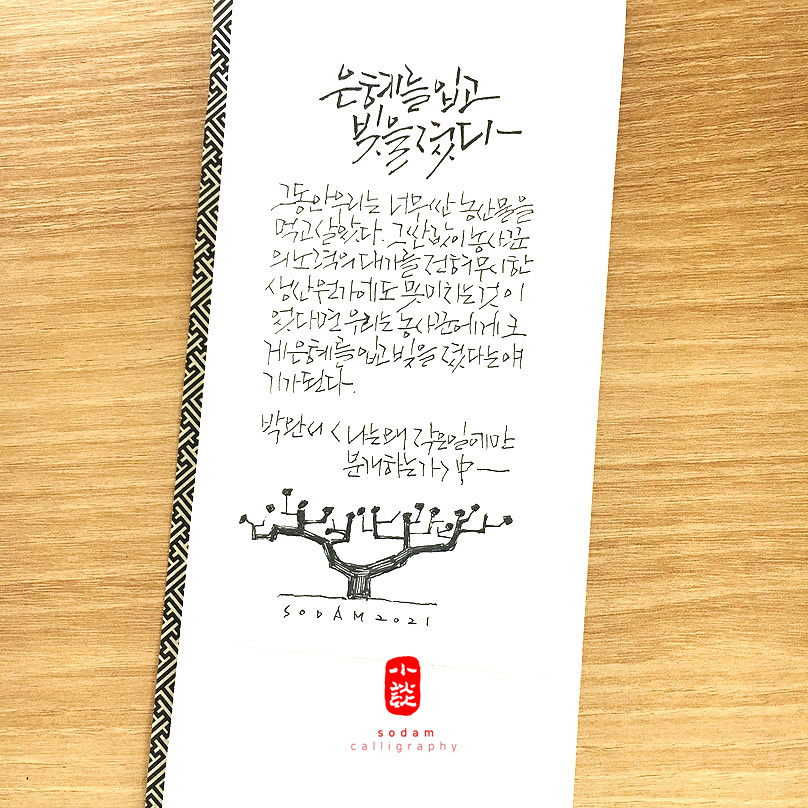 은혜를 입고
빚을 졌다
그동안 우리는 너무 싼 농산물을
먹고 살았다. 그 싼 값이 농사꾼
의 노력의 대가를 전혀 무시한
생산원가에도 못 미치는 것이
었다면 우리는 농사꾼에게 크
게 은혜를 입고 빚을 졌다는 얘
기가 된다.
박완서 <나는 왜 작은 일에만
분개하는가> 中
SODAM 2021
小
談
sodam
calligraphy